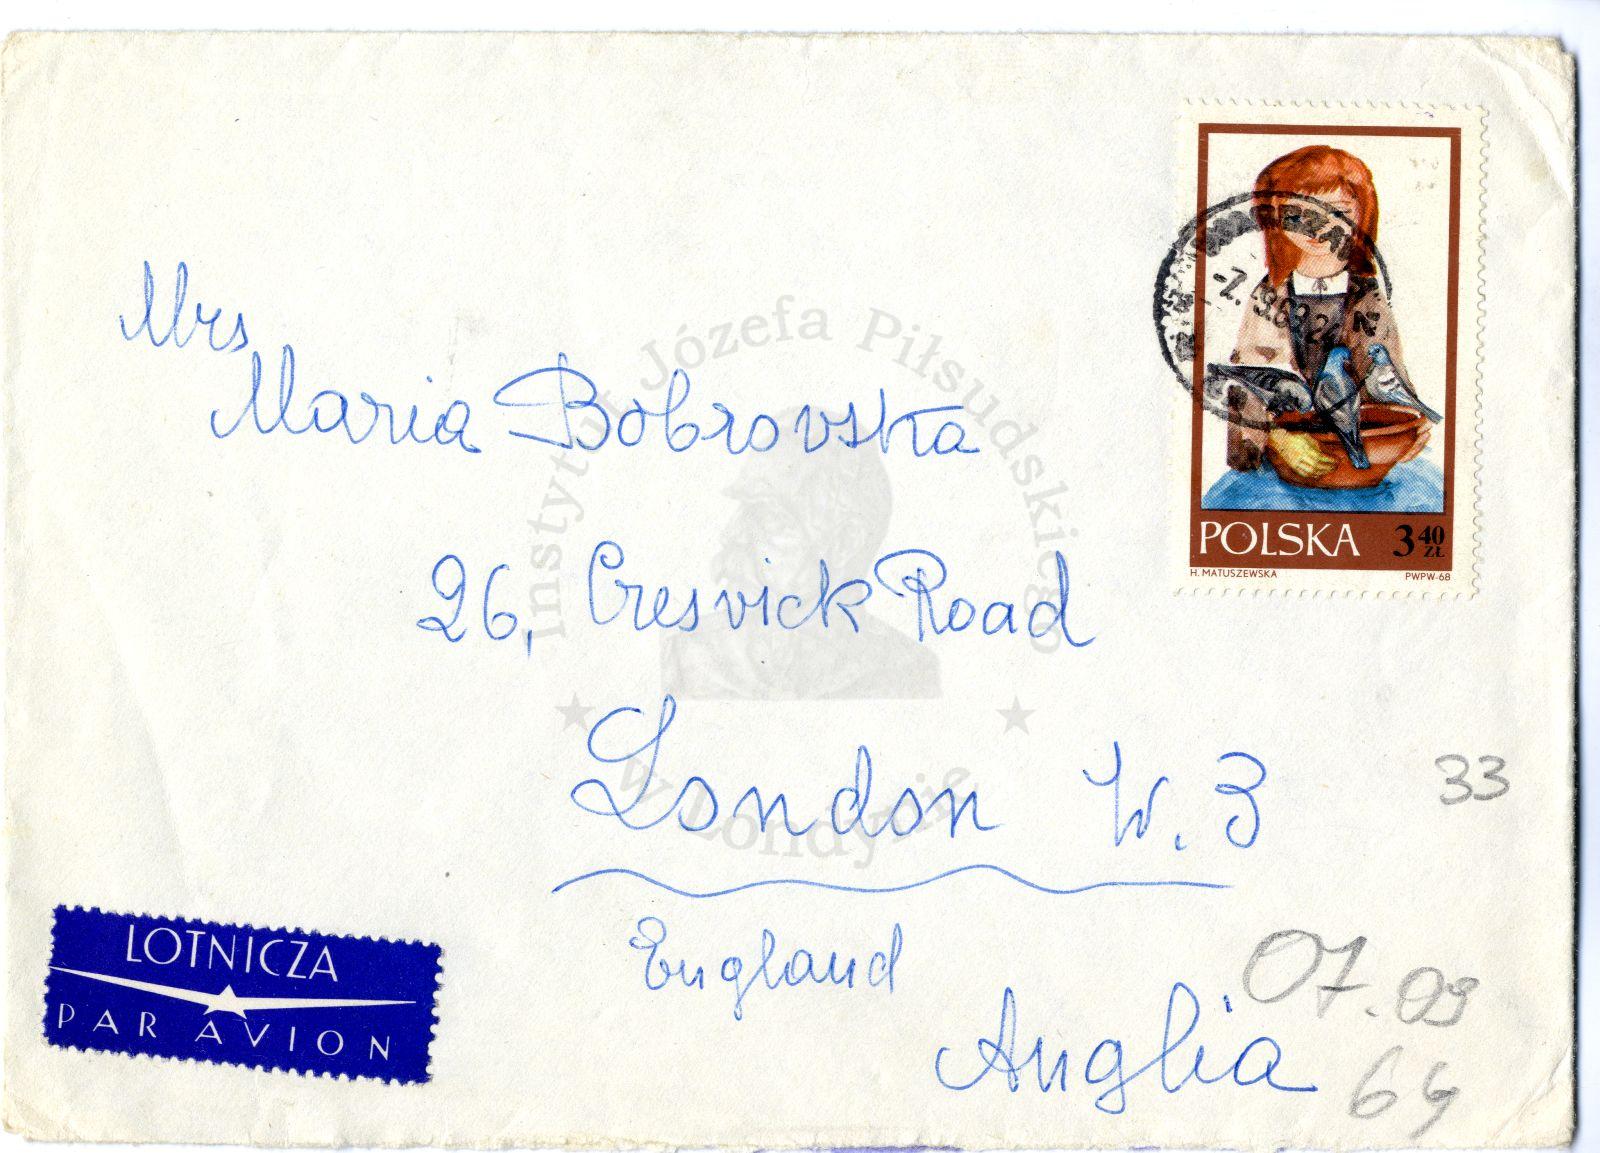 Mrs
Maria Bobrovska
26, Cresvick Road
London W. 3
England
Anglia
POLSKA 3 40 ZŁ
H. MATUSZEWSKA PWPW-68
-7.09.69.24
33
07.09
69
LOTNICZA
PAR AVION
Instytut Józefa Piłsudskiego
w Londynie